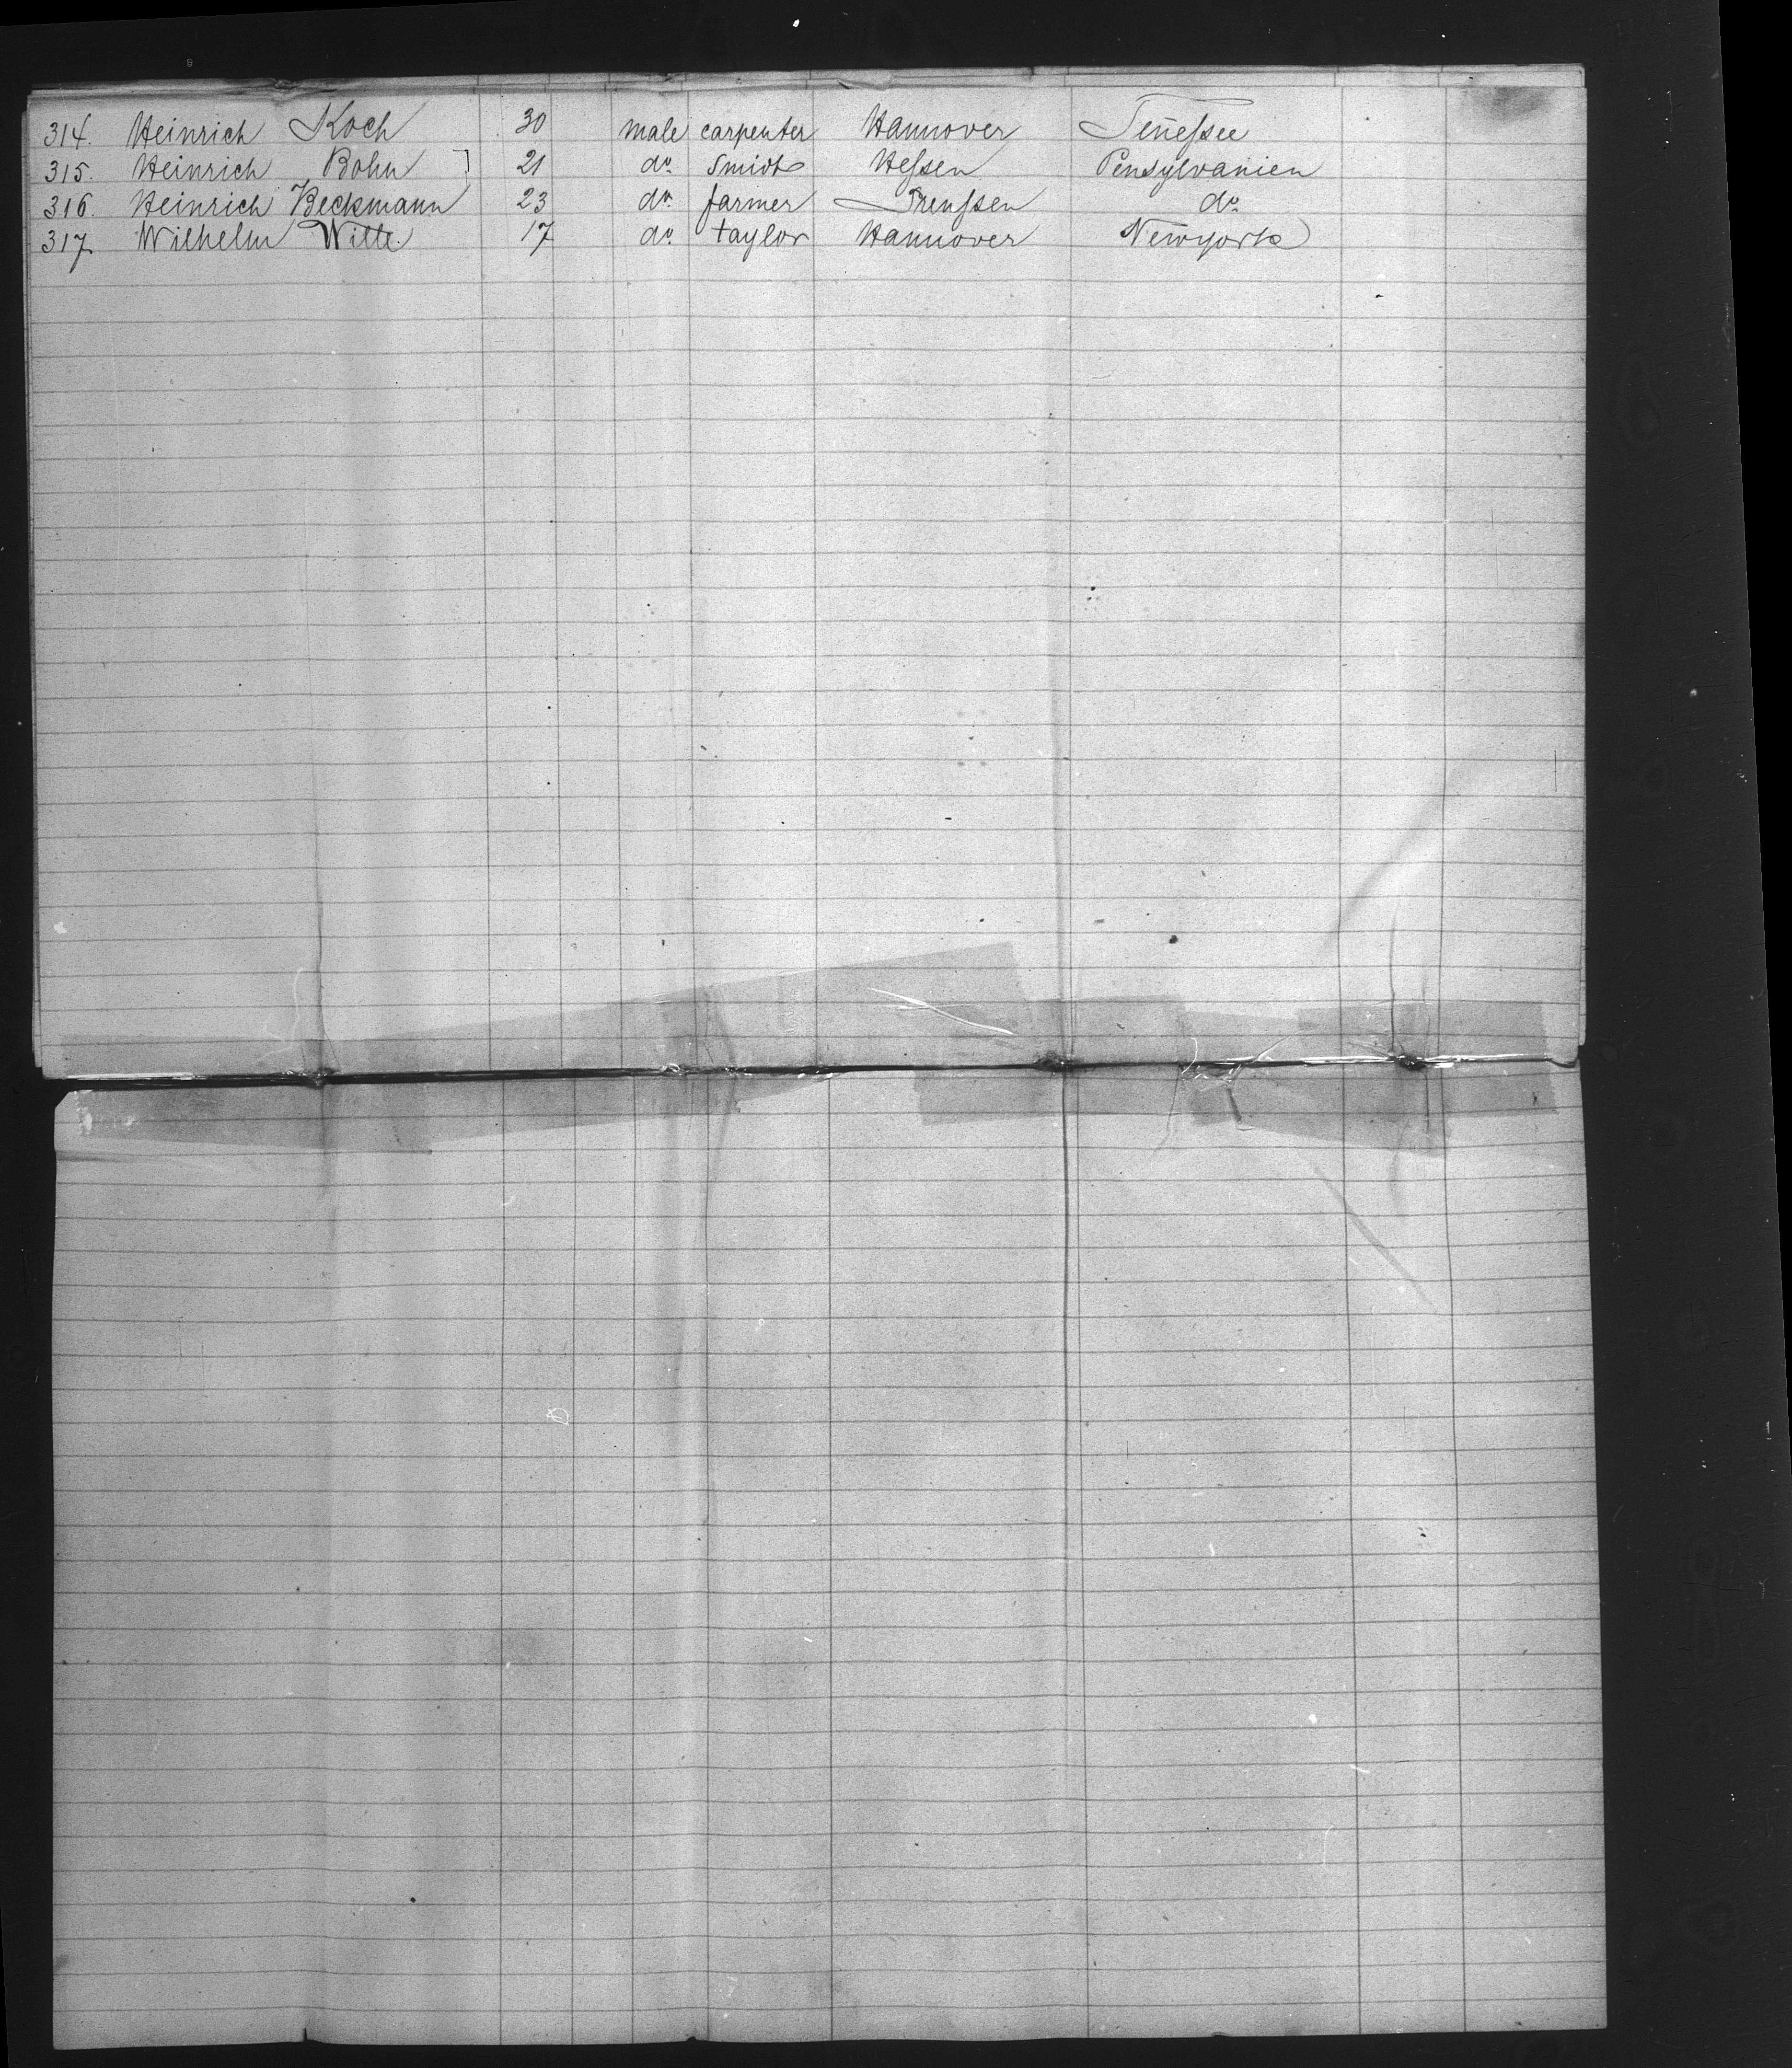 314. Heinrich Koch 30 male carpenter Hannover Teneßee
315. Heinrich Bohn ] 21 do. Smidt Heßen Pensylvanien
316. Heinrich Beckmann 23 do. farmer Preußen do.
317. Wilhelm Witte. 17 do. taylor Hannover Newyork